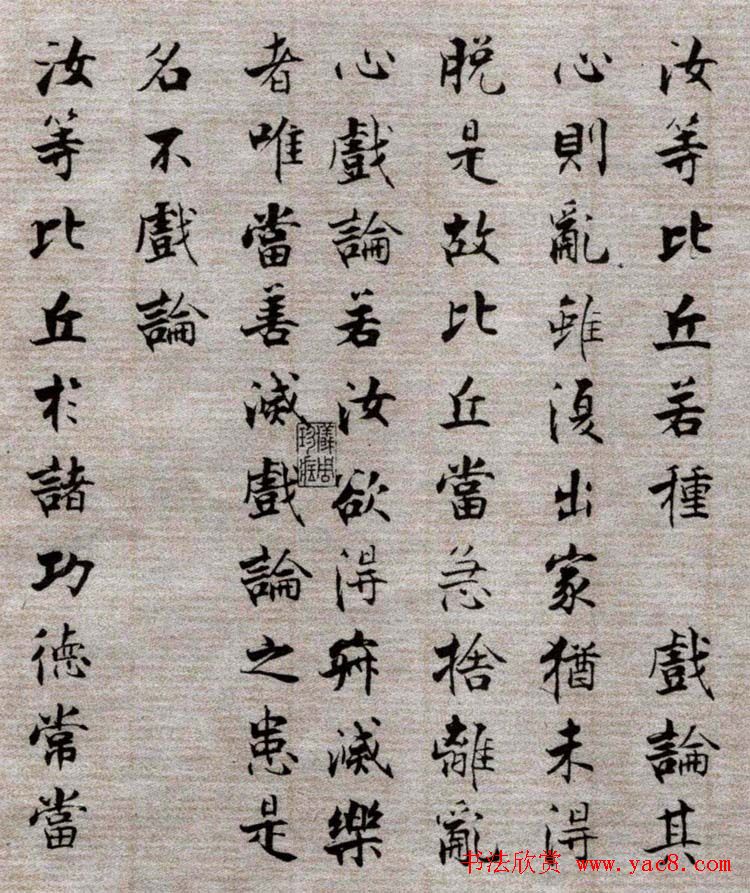 汝等比丘若種 戲論其
心則亂雖復出家猶未得
脫是故比丘當急捨離亂
心戲論若汝欲得寂滅樂
者唯當善滅戲論之患是
名不戲論
汝等比丘於諸功德常當
儀周珍藏
书法欣赏 www.yac8.com